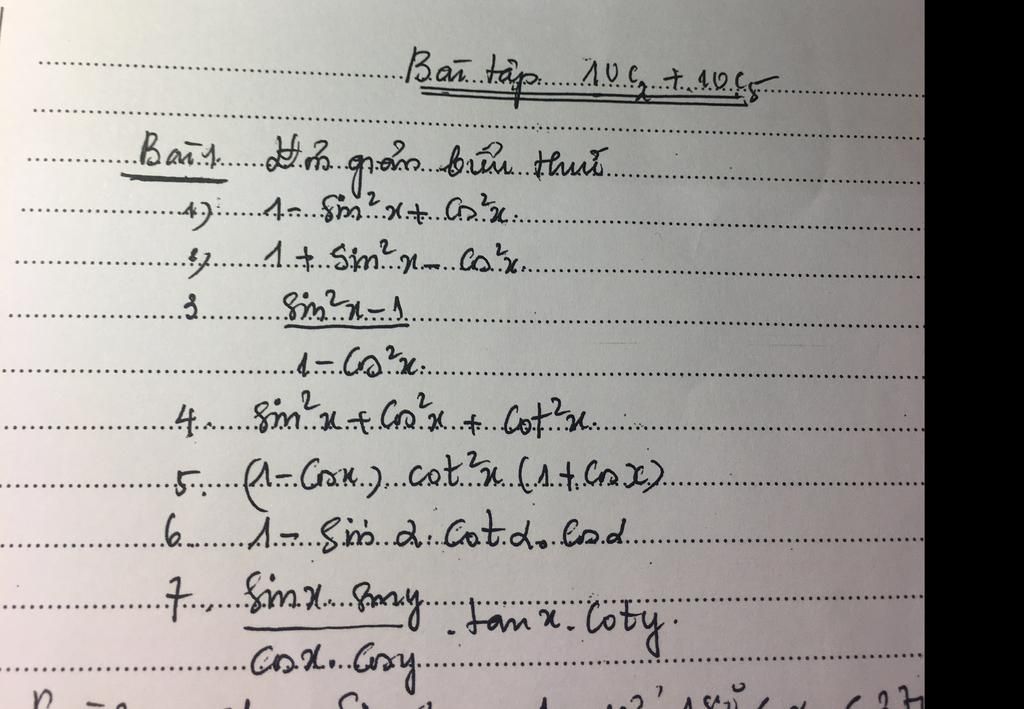 Bài tập 10C₂ + 10C₅
Bài 1. Đơn giản biểu thức
1) 1 - sin²x + cos²x.
2) 1 + sin²x - cos²x.
3 sin²x - 1
1 - cos²x.
4. sin²x + cos²x + cot²x.
5. (1 - cosx) cot²x (1 + cosx)
6 1 - sin α. cot α. cos α
7. sinx. siny
cosx. cosy . tanx. coty.